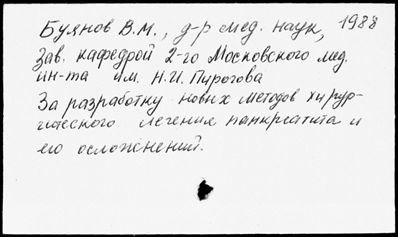 Буянов В.М., д-р мед. наук, 1988
Зав. кафедрой 2-го Московского мед.
ин-та им. Н.И. Пирогова
За разработку новых методов хирур-
гического лечения панкреатита и
его осложнений.